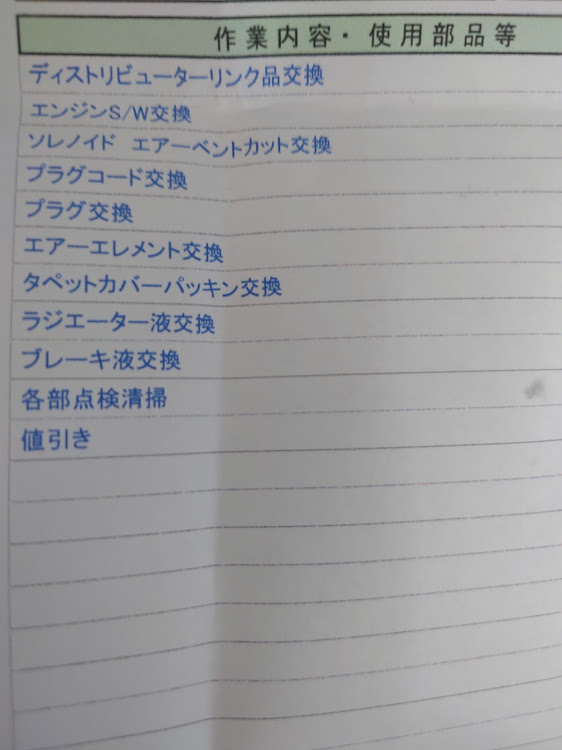 作業内容・使用部品等
ディストリビューターリンク品交換
エンジンS/W交換
ソレノイド エアーベントカット交換
プラグコード交換
プラグ交換
エアーエレメント交換
タペットカバーパッキン交換
ラジエーター液交換
ブレーキ液交換
各部点検清掃
値引き